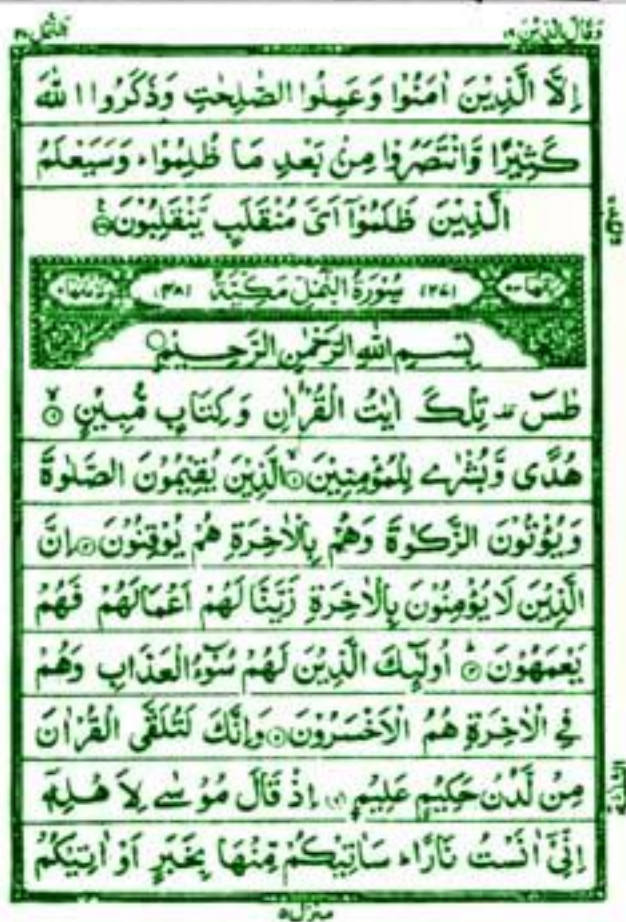 وَقَالَ الَّذِيْنَ ۱۹
النَّمْل ۲۷
اِلَّا الَّذِيْنَ اٰمَنُوْا وَعَمِلُوا الصّٰلِحٰتِ وَذَكَرُوا اللّٰهَ
كَثِيْرًا وَّانْتَصَرُوْا مِنْۢ بَعْدِ مَا ظُلِمُوْا ؕ وَسَيَعْلَمُ
الَّذِيْنَ ظَلَمُوْۤا اَىَّ مُنْقَلَبٍ يَّنْقَلِبُوْنَ
(۲۷) سُوْرَةُ النَّمْلِ مَكِّيَّةٌ (۴۸)
بِسْمِ اللّٰهِ الرَّحْمٰنِ الرَّحِيْمِ
طٰسٓ تِلْكَ اٰيٰتُ الْقُرْاٰنِ وَكِتَابٍ مُّبِيْنٍ ۱
هُدًى وَّبُشْرٰى لِلْمُؤْمِنِيْنَ ۲ الَّذِيْنَ يُقِيْمُوْنَ الصَّلٰوةَ
وَيُؤْتُوْنَ الزَّكٰوةَ وَهُمْ بِالْاٰخِرَةِ هُمْ يُوْقِنُوْنَ ۳ اِنَّ
الَّذِيْنَ لَا يُؤْمِنُوْنَ بِالْاٰخِرَةِ زَيَّنَّا لَهُمْ اَعْمَالَهُمْ فَهُمْ
يَعْمَهُوْنَ ۴ اُولٰٓئِكَ الَّذِيْنَ لَهُمْ سُوْٓءُ الْعَذَابِ وَهُمْ
فِى الْاٰخِرَةِ هُمُ الْاَخْسَرُوْنَ ۵ وَاِنَّكَ لَتُلَقَّى الْقُرْاٰنَ
مِنْ لَّدُنْ حَكِيْمٍ عَلِيْمٍ ۶ اِذْ قَالَ مُوْسٰى لِاَهْلِهٖۤ
اِنِّىْۤ اٰنَسْتُ نَارًا ؕ سَاٰتِيْكُمْ مِّنْهَا بِخَبَرٍ اَوْ اٰتِيْكُمْ
منزل ۵